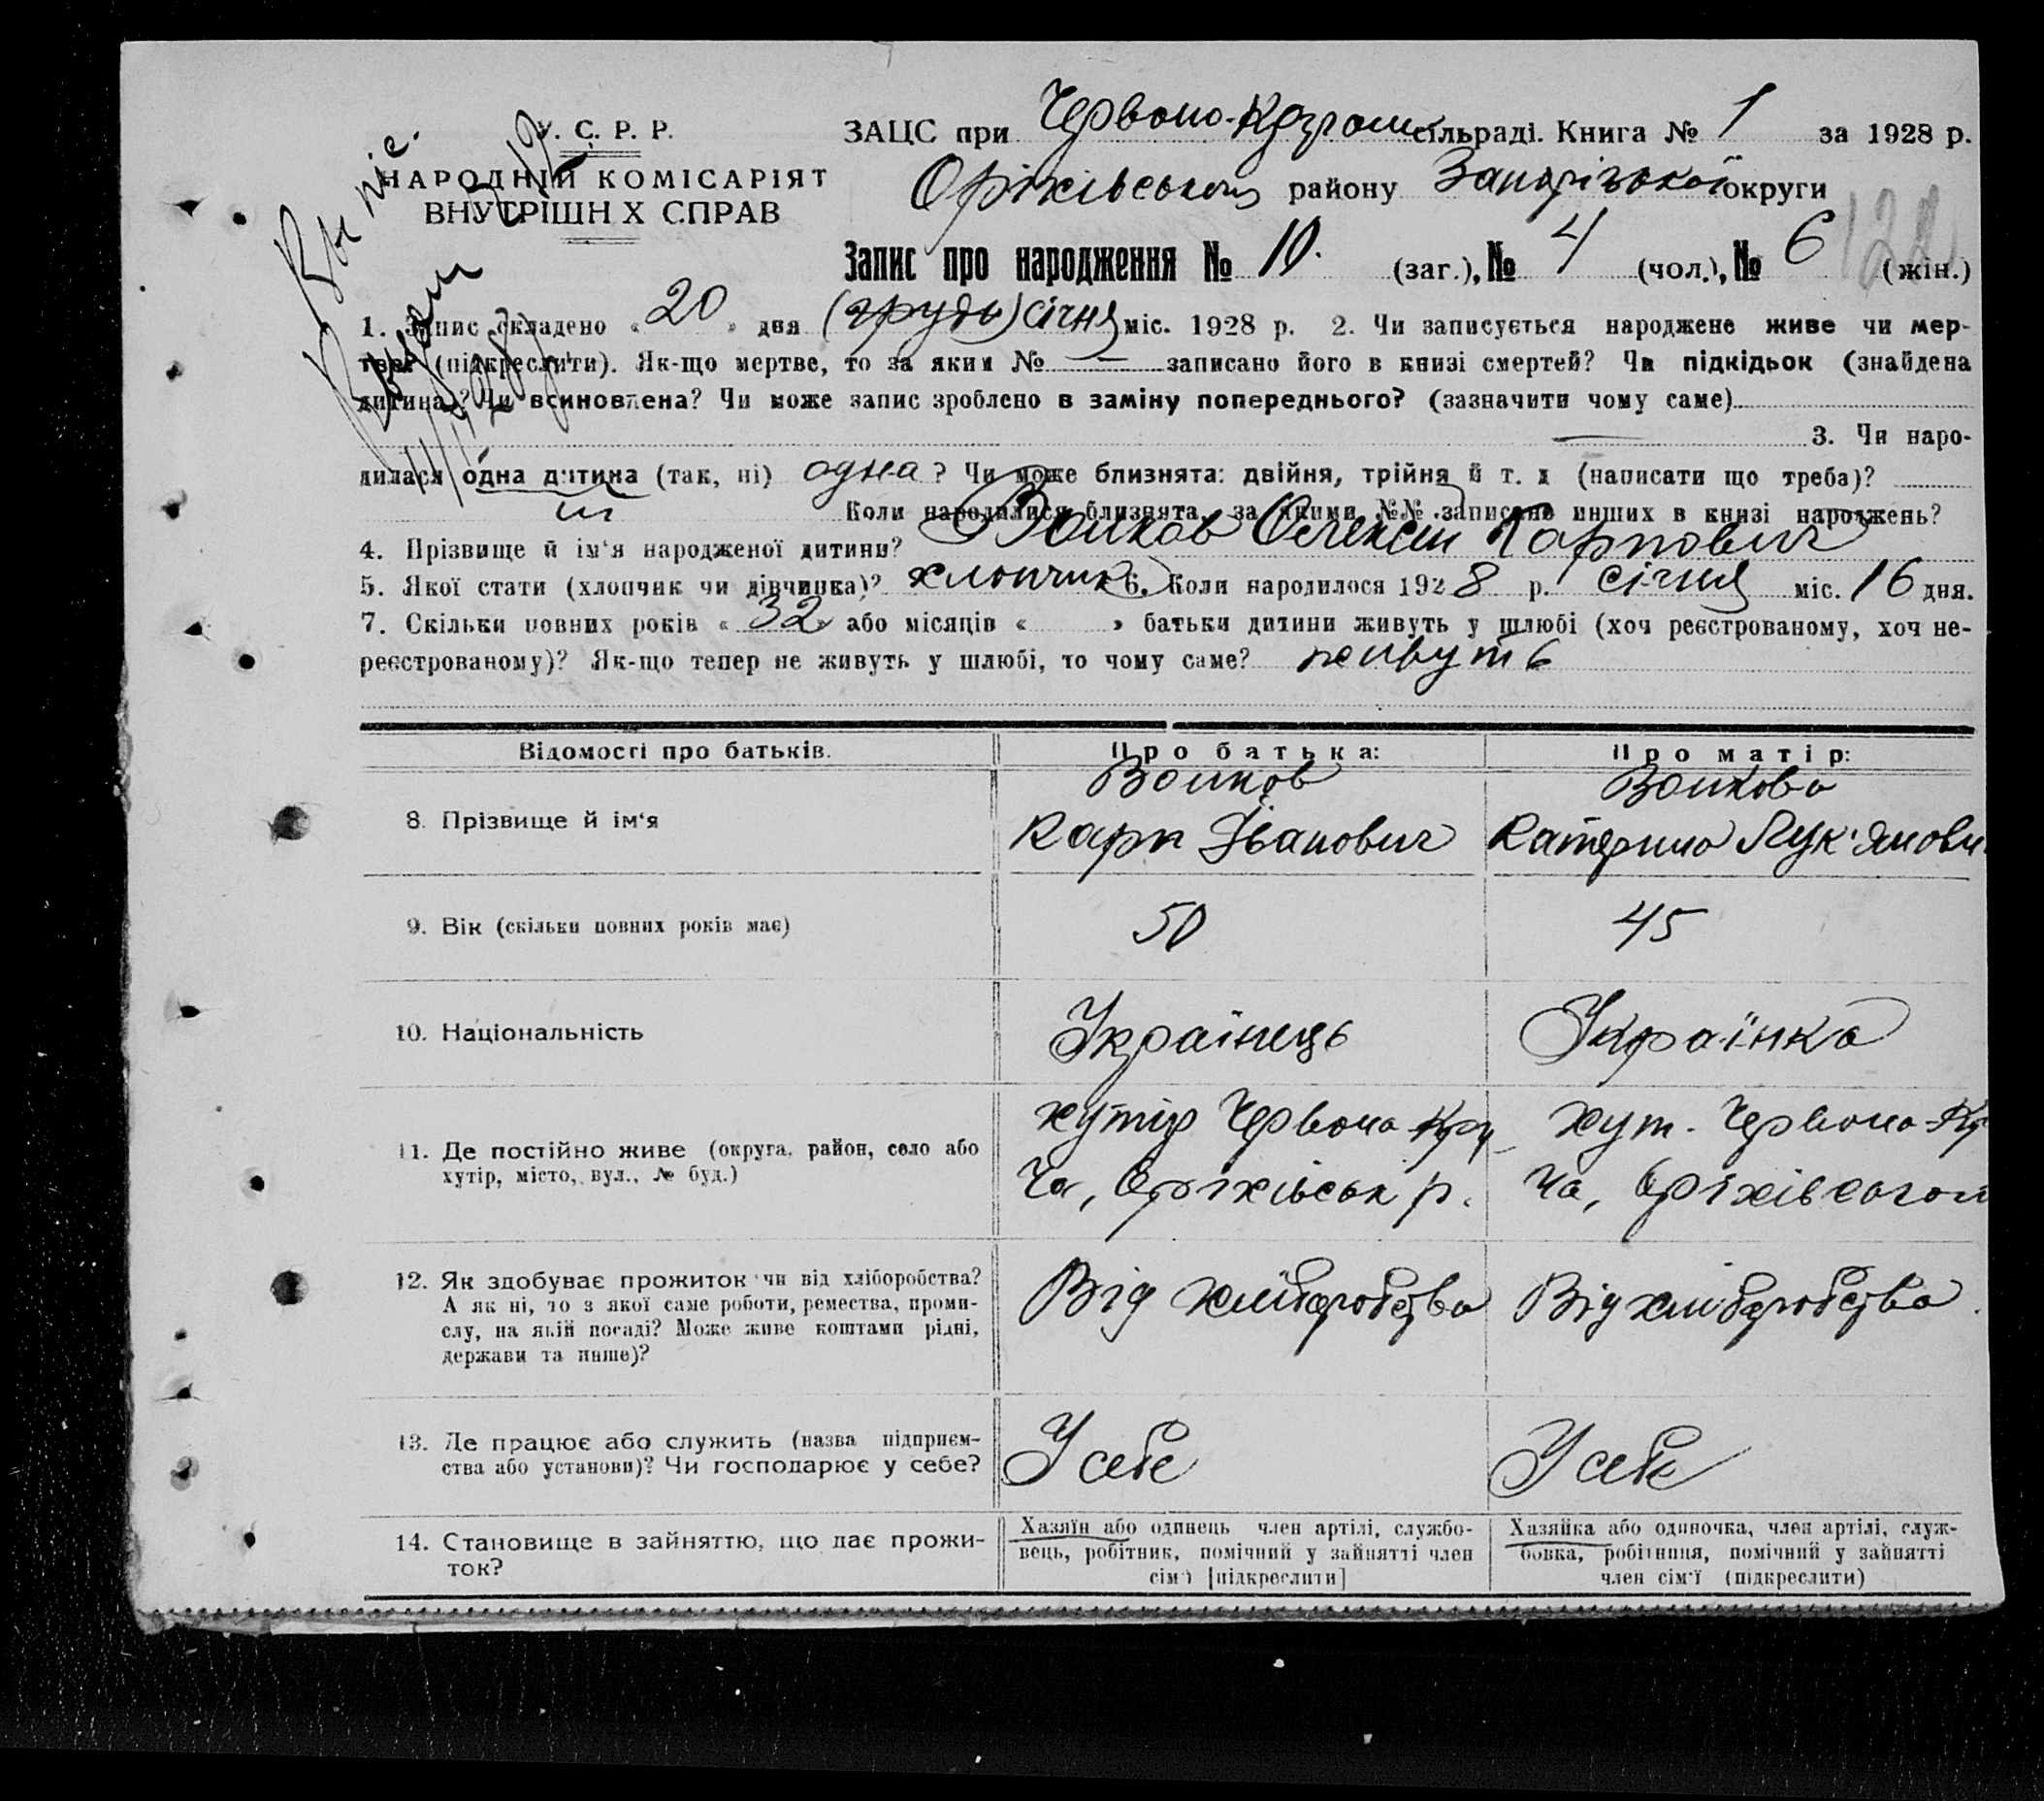 У. С. Р. Р.
НАРОДНІЙ КОМІСАРІЯТ
ВНУТРІШН Х СПРАВ
ЗАЦС при Червоно- сільраді. Книга № 1 за 1928 р.
Оріхівського району Запорізької округи
Запис про народження № 10. (заг.), № 4 (чол.), № 6 (жін.)
1. Запис складено « 20 » дня (грудь) січня міс. 1928 р. 2. Чи записується народжене живе чи мер-
тве? (підкреслити). Як-що мертве, то за яким № — записано його в книзі смертей? Чи підкідьок (знайдена
дитина)? Чи всиновлена? Чи може запис зроблено в заміну попереднього? (зазначити чому саме)
— 3. Чи наро-
дилася одна дитина (так, ні) одна? Чи може близнята: двійня, трійня й т. д (написати що треба)?
Коли народилися близнята, за якими №№ записано инших в книзі народжень?
4. Прізвище й ім'я народженої дитини? Волков Олексій Карпович
5. Якої стати (хлопчик чи дівчинка)? хлопчик 6. Коли народилося 1928 р. січня міс. 16 дня.
7. Скільки повних років « 32 » або місяців « » батьки дитини живуть у шлюбі (хоч реєстрованому, хоч не-
реєстрованому)? Як-що тепер не живуть у шлюбі, то чому саме? живуть
Відомості про батьків. Про батька: Про матір:
8. Прізвище й ім'я
Волков
Карп Іванович
Волкова
Катерина Лук'янови
9. Вік (скільки повних років має) 50 45
10. Національність Українець Українка
11. Де постійно живе (округа, район, село або
хутір, місто, вул., № буд.)
хутір Червона-Кру
ча, Оріхівськ р.
хут. Червона-Кр
ча, Оріхівського
12. Як здобуває прожиток чи від хліборобства?
А як ні, то з якої саме роботи, ремества, проми-
слу, на якій посаді? Може живе коштами рідні,
держави та инше)?
Від хліборобства
Від хліборобства
13. Де працює або служить (назва підприєм-
ства або установи)? Чи господарює у себе?
У себе
У себе
14. Становище в зайняттю, що дає прожи-
ток?
Хазяїн або одинець член артілі, службо-
вець, робітник, помічний у зайнятті член
сім'ї [підкреслити]
Хазяйка або одиночка, член артілі, служ-
бовка, робітниця, помічний у зайнятті
член сім'ї (підкреслити)